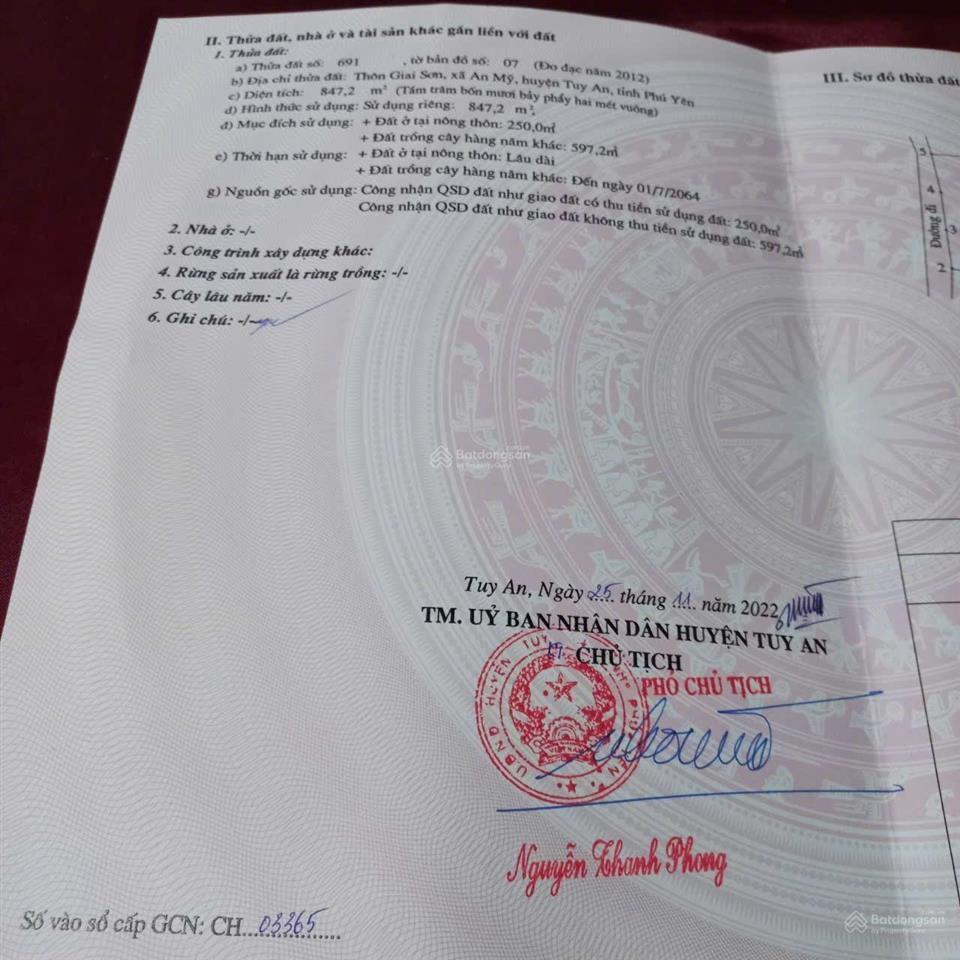 II. Thửa đất, nhà ở và tài sản khác gắn liền với đất
1. Thửa đất:
a) Thửa đất số: 691 , tờ bản đồ số: 07 (Đo đạc năm 2012)
b) Địa chỉ thửa đất: Thôn Giai Sơn, xã An Mỹ, huyện Tuy An, tỉnh Phú Yên
c) Diện tích: 847,2 m² (Tám trăm bốn mươi bảy phẩy hai mét vuông)
d) Hình thức sử dụng: Sử dụng riêng: 847,2 m².
đ) Mục đích sử dụng: + Đất ở tại nông thôn: 250,0m²
+ Đất trồng cây hàng năm khác: 597,2m²
e) Thời hạn sử dụng: + Đất ở tại nông thôn: Lâu dài
+ Đất trồng cây hàng năm khác: Đến ngày 01/7/2064
g) Nguồn gốc sử dụng: Công nhận QSD đất như giao đất có thu tiền sử dụng đất: 250,0m²
Công nhận QSD đất như giao đất không thu tiền sử dụng đất: 597,2m²
2. Nhà ở: -/-
3. Công trình xây dựng khác:
4. Rừng sản xuất là rừng trồng: -/-
5. Cây lâu năm: -/-
6. Ghi chú: -/-
III. Sơ đồ thửa đất
5
4
Đường đi
3
2
Batdongsan
by PropertyGuru
Tuy An, Ngày 25 tháng 11 năm 2022
TM. UỶ BAN NHÂN DÂN HUYỆN TUY AN
CHỦ TỊCH
PHÓ CHỦ TỊCH
U.B.N.D HUYỆN TUY
VIỆT NAM
Nguyễn Thanh Phong
Số vào sổ cấp GCN: CH 03365
Batdongsan
by PropertyGuru